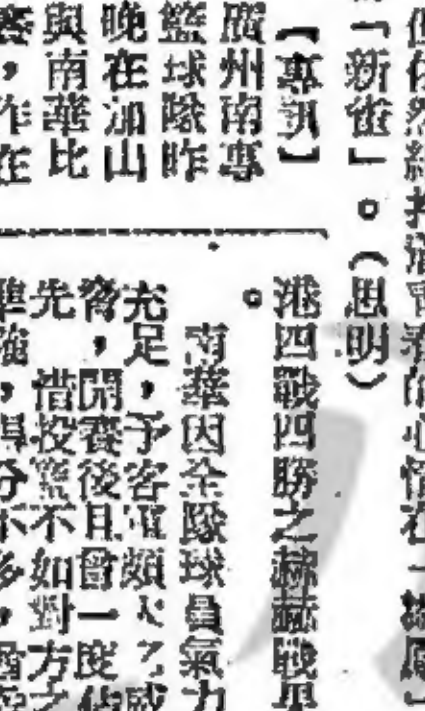 但依然的心情在一
「新雀」。(思明)
【專訊】
廣州南專
籃球隊昨
晚在加山
與南華比
賽,作在
港四戰四勝之赫赫戰果
。
南華因全隊球員氣力
充足,予客軍頗大之威
脅,開賽後且曾一度佔
先 惜投籃不如對方之
準確,得分不多,